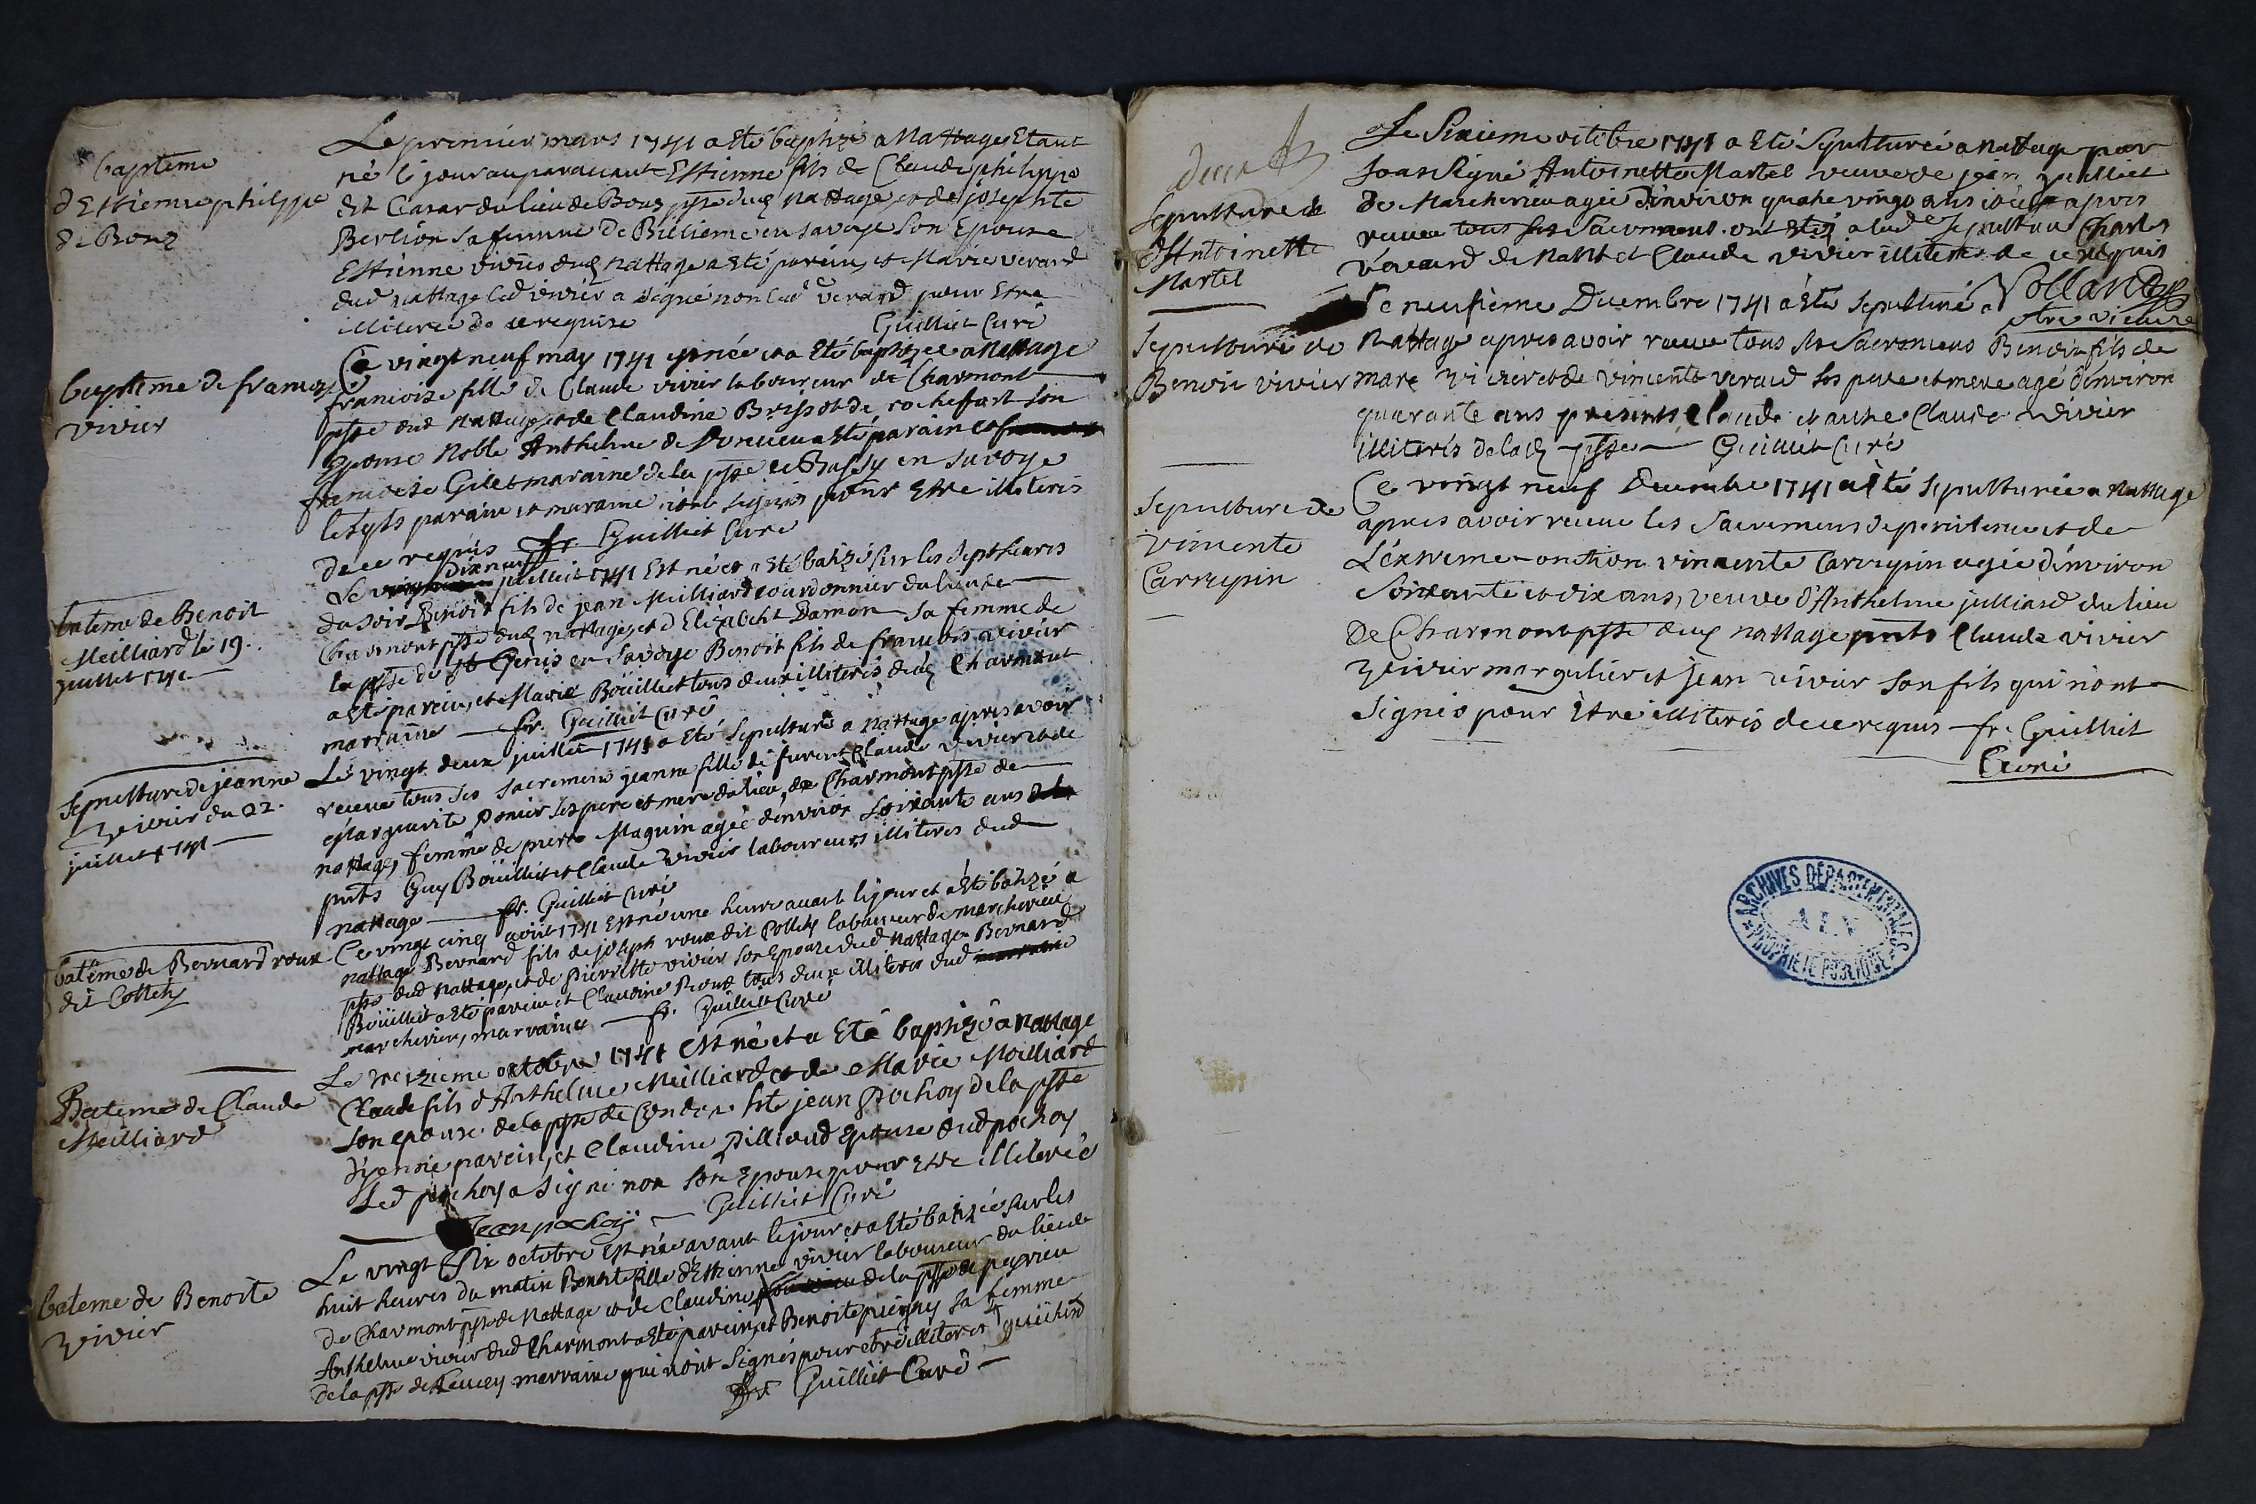 bapteme
d'Estienne philippe
de Bonz
Le premier mars 1741 a Eté baptizé a Nattages Etant
né le jour auparavant Estienne fils de Claude philippe
dit Cesar du lieu de Bonz psse dud nattage et de josephte
Berlion sa femme de Billieme en savoye son Epouse
Estienne vivier dud nattage a esté parein, et Marie verard
dud nattage led vivier a signé non lad verard pour Etre
illiterée de ce requise Guilliet Curé
baptême de francoise
vivier
Ce vingt neuf may 1741 est née et a Eté baptizée a Nattage
francoise fille de Claude vivier laboureur de Charmont
psse dud Nattage et de Claudine Brissot de rochefort son
Epouse Noble Anthelme de a esté parain et
francoise Gilet maraine de la psse de en savoye
lesqls parain et maraine n'ont signés pour Etre illiteris
de ce requis fr. Guilliet Curé
bateme de Benoit
Meilliard le 19.
juillet 1741
Le dix neuf juilliet 1741 Est né et a esté batizé sur les sept heures
du soir Benoit fils de jean Meilliard courdonnier du lieu de
Charmont psse dud nattages, et d'Elizabeht Damon sa femme de
la psse de st Genis en Savoye Benoit fils de francois vivier
a esté parein, et Marie Boüilliet tous deux illiteris dud Charmont
marraine fr. Guilliet Curé
Sepulture de jeanne
vivier du 22.
juillet 1741
Le vingt deux juillet 1741 a Eté sepulturé a Nattage apres avoir
receue tous ses sacremens jeanne fille de furent Claude vivier et de
Marguerite ses pere et mere du lieu de Charmont psse de
nattages femme de pierre Maguin agée d'environ soixante ans
pnts Guy Boüilliet et Claude vivier laboureurs illiteres dud
nattage fr. Guilliet Curé
batême de Bernard roux
dit Collet
Ce vingt cinq août 1741 Est né une heure avant le jour et a esté batizé a
nattage Bernard fils de joseph roux dit Collet laboureur de marchevieu
psse dud Nattages, et de Pierrette vivier son Epouse dud Nattages Bernard
Boüilliet a esté parein et Claudine Roux tous deux illiteres dud
marchevieu, marraine fr. Guilliet Curé
Bateme de Claude
Meilliard
Le treizieme octobre 1741 est né et a Eté baptizé a nattage
Claude fils d'Anthelme Meilliard et de Marie Meilliard
son epouse de la psse de jean Pochoy de la psse
parein, et Claudine Epouse dud pochoy
Led pochoy a signé non son Epouse pour Etre illiterée
Jean pochoÿ Guilliet Curé
bateme de Benoite
vivier
Le vingt six octobre est née avant le jour et a esté batizée sur les
huit heures du matin Benoite fille d'Estienne vivier laboureur du lieu de
de Charmont psse de Nattage et de Claudine de la psse de peyrieu
Anthelme vivier dud Charmont a esté parein, et Benoite sa femme
de la psse de marraine qui n'ont signés pour etre illiteres
fr. Guilliet Curé
Sepulture de
d'Antoinette
Martel
Le Sixieme octobre 1741 a Eté Sepulturée a Nattage par
soussigné Antoinette Martel veuve de jean juilliet
de Marchevieu agée d'environ quatre vingt ans apres
receue tous ses sacremens. ont a lad sepulture Charles
verard de Nant et Claude vivier illiteres de ce requis
Vollandy
vicaire
Sepulture de
Benoit vivier
Le neufieme Decembre 1741 a été sepulturé a
Nattage apres avoir receue tous ses sacremens Benoit fils de
marc vivier et de vincente verard ses pere et mere agé d'environ
quarante ans presents Claude et autre Claude vivier
illiteris de lad psse Guilliet Curé
Sepulture de
vincente
Carrypin
Ce vingt neuf Decembre 1741 a été sepulturée a Nattage
apres avoir receue les sacremens de penitence et de
L'extreme-onction vincente Carrypin agée d'environ
Soixante et dix ans, veuve d'Anthelme julliard du lieu
de Charmont psse dud nattage pnts Claude vivier
vivier margulier et jean vivier son fils qui n'ont
signés pour être illiteris de ce requis fr. Guilliet
Curé
ARCHIVES DÉPARTEMENTALES
AIN
PROPRIÉTÉ PUBLIQUE